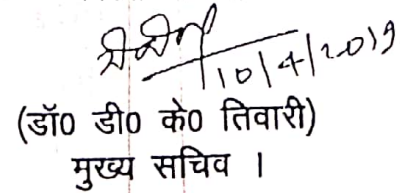 10/4/2019
(डॉ0 डी0 के0 तिवारी)
मुख्य सचिव ।